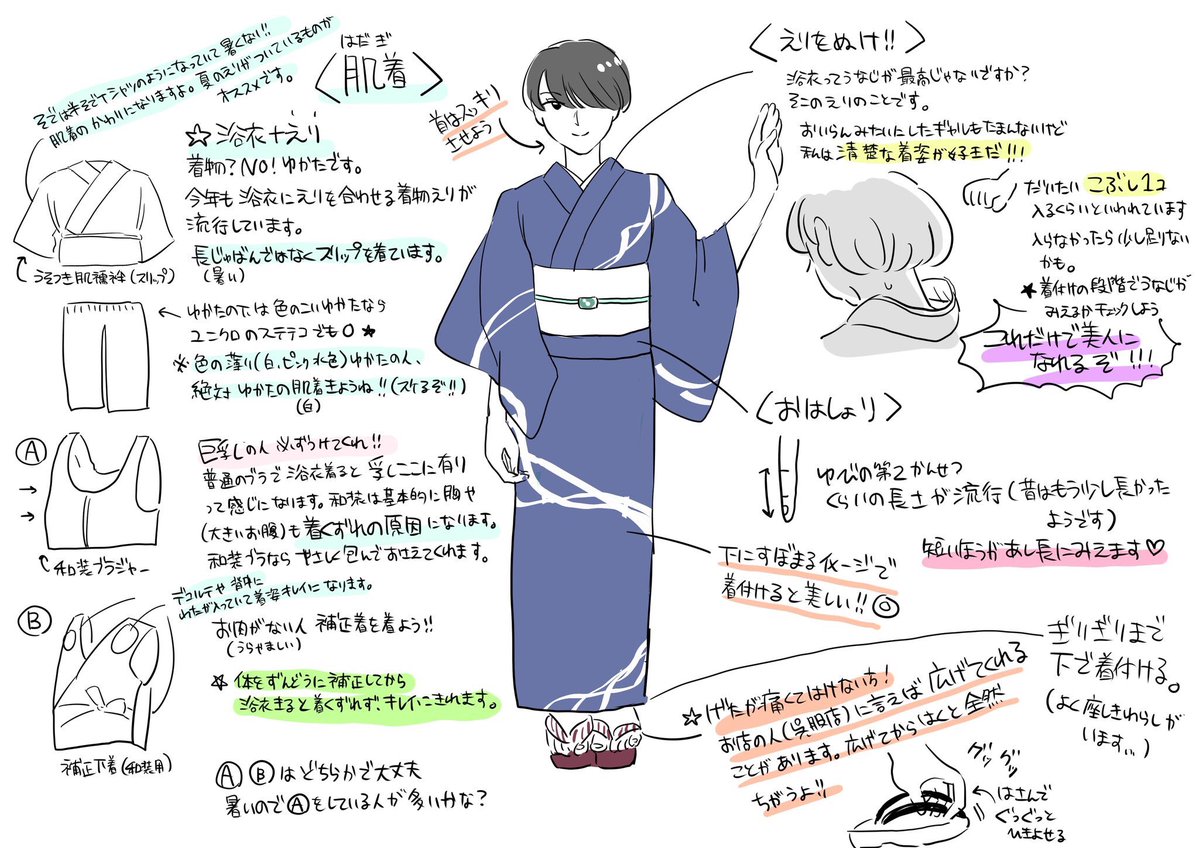 そでははそでTシャツのようになっていて暑くない!!
肌着のかわりになりますよ。夏のえりがついているものが
オススメです。
はだぎ
〈肌着〉
☆浴衣+えり
着物?NO!ゆかたです。
今年も浴衣にえりを合わせる着物えりが
流行しています。
長じゅばんではなくスリップを着ています。
(暑い)
うそつき肌襦袢(スリップ)
ゆかたの下は色のこいゆかたなら
ユニクロのステテコでも○★
※色の薄い(白、ピンク、水色)ゆかたの人、
絶対ゆかたの肌着きようね!!(スケるぞ!!)
(白)
Ⓐ
巨乳の人必ずつけてくれ!!
普通のブラで浴衣着ると乳ここに有り
って感じになります。和装は基本的に胸や
(大きいお腹)も着くずれの原因になります。
和装ブラならやさしく包んでおさえてくれます。
和装ブラジャー
デコルテや背中に
わたが入っていて着姿キレイになります。
Ⓑ
お肉がない人 補正着を着よう!!
(うらやましい)
☆体をずんどうに補正してから
浴衣きると着くずれず、キレイにきれます。
補正下着(和装用)
ⒶⒷはどちらかで大丈夫
暑いのでⒶをしている人が多いかな?
首はスッキリ
させよう
〈えりをぬけ!!〉
浴衣ってうなじが最高じゃないですか?
そこのえりのことです。
おいらんみたいにしたギャルもたまんないけど
私は清楚な着姿が好きだ!!!
だいたいこぶし1コ
入るくらいといわれています
入らなかったら少し足りない
かも。
★着付けの段階でうなじが
みえるかチェックしよう
これだけで美人に
なれるぞ!!!
〈おはしょり〉
ゆびの第2かんせつ
くらいの長さが流行(昔はもう少し長かった
ようです)
短いほうがあし長にみえます♡
下にすぼまるイメージで
着付けると美しい!!◎
ぎりぎりまで
下で着付ける。
(よく座しきわらしが
います、、、)
☆げたが痛くてはけない方!
お店の人(呉服店)に言えば広げてくれる
ことがあります。広げてからはくと全然
ちがうよ!!
グッグッ
はさんで
ぐっぐっと
ひきよせる